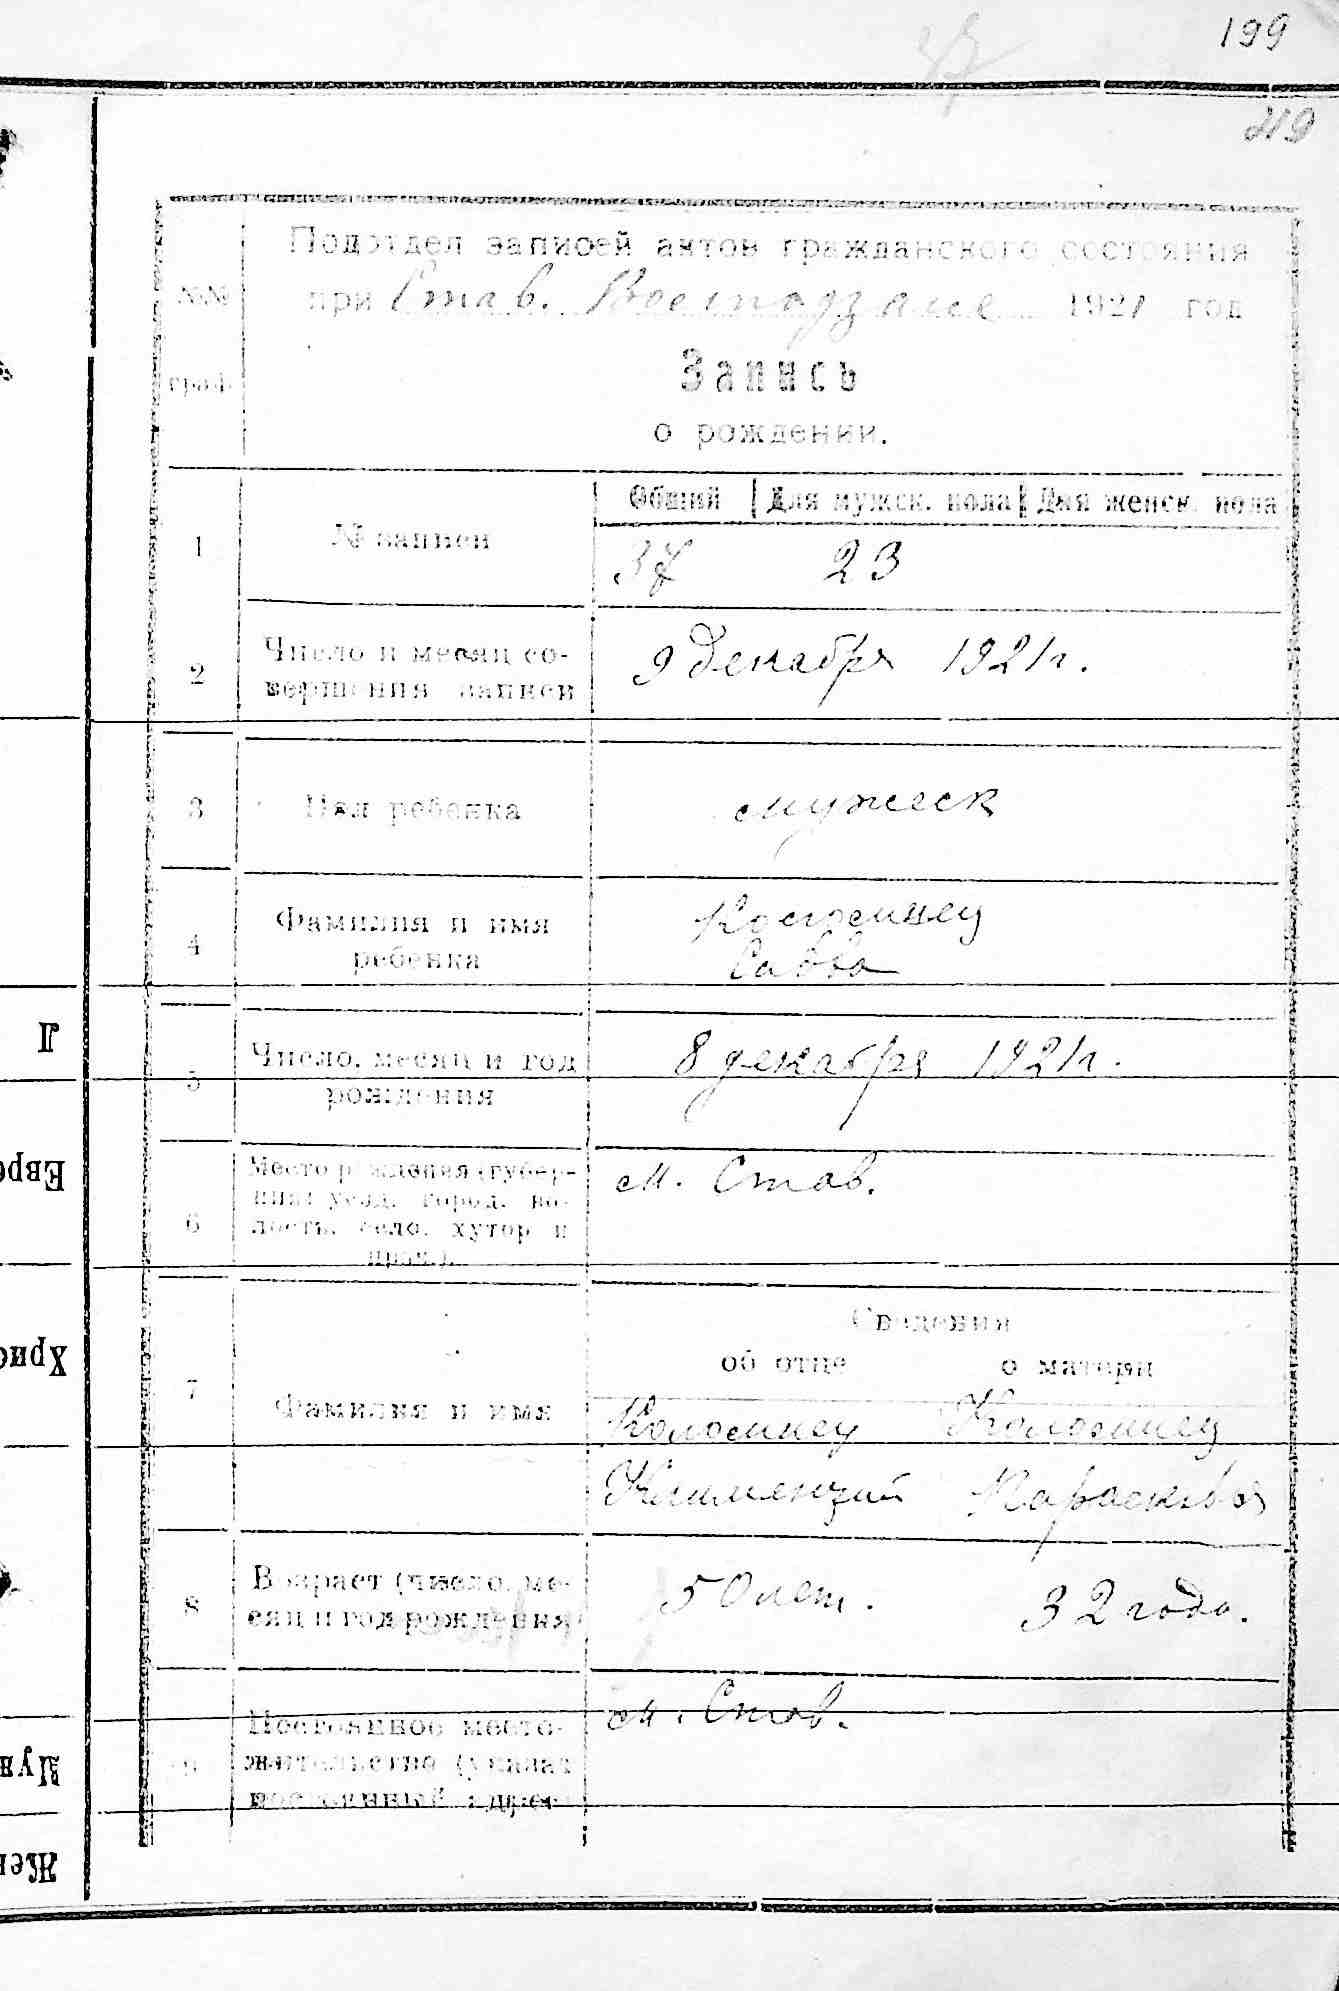 199
219
Подотдел записей актов гражданского состояния
№№
при Став. 1921 год
граф.
Запись
о рождении.
Общий Для мужск. пола Для женск. пола
1 № записи
37 23
2 Число и месяц со-
вершения записи
9 декабря 1921 г.
3 Пол ребенка мужеск
4 Фамилия и имя
ребенка
Савва
5 Число, месяц и год
рождения
8 декабря 1921 г.
6 Место рождения (губер-
ния, уезд, город, во-
лость, село, хутор и
проч.).
м. Став.
Сведения
об отце о матери
7 Фамилия и имя
Коломиец Коломиец
Климентий Параскева
8 Возраст (число, ме-
сяц и год рождения
50 лет. 32 года.
Постоянное место-
жительство (указат
постоянный адрес
м. Став.
Л
Евре
Хрис
Муж
Жен